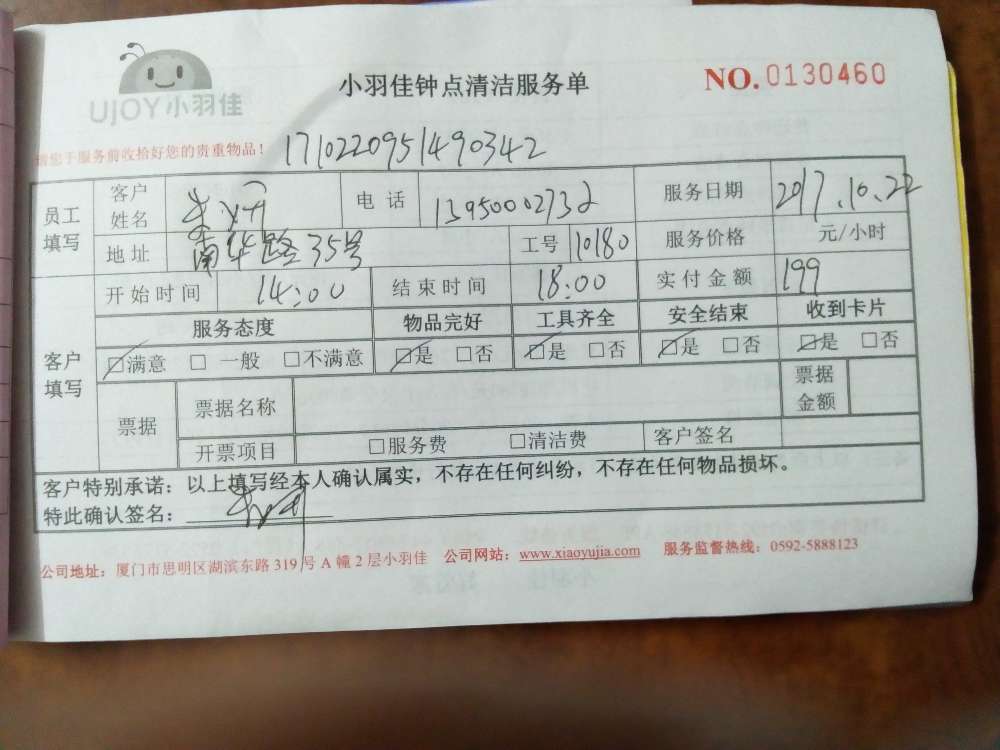 UjOY小羽佳
小羽佳钟点清洁服务单
NO.0130460
请您于服务前收拾好您的贵重物品！ 1710220951490342
员工填写 客户姓名 电话 13950002732 服务日期 2017.10.22
地址 南华路35号 工号 10180 服务价格 元/小时
开始时间 14:00 结束时间 18:00 实付金额 199
客户填写 服务态度 物品完好 工具齐全 安全结束 收到卡片
☑满意 □ 一般 □不满意 ☑是 □否 ☑是 □否 ☑是 □否 ☑是 □否
票据 票据名称 票据金额
开票项目 □服务费 □清洁费 客户签名
客户特别承诺：以上填写经本人确认属实，不存在任何纠纷，不存在任何物品损坏。
特此确认签名：
公司地址：厦门市思明区湖滨东路 319 号 A 幢 2 层小羽佳 公司网站：www.xiaoyujia.com 服务监督热线：0592-5888123